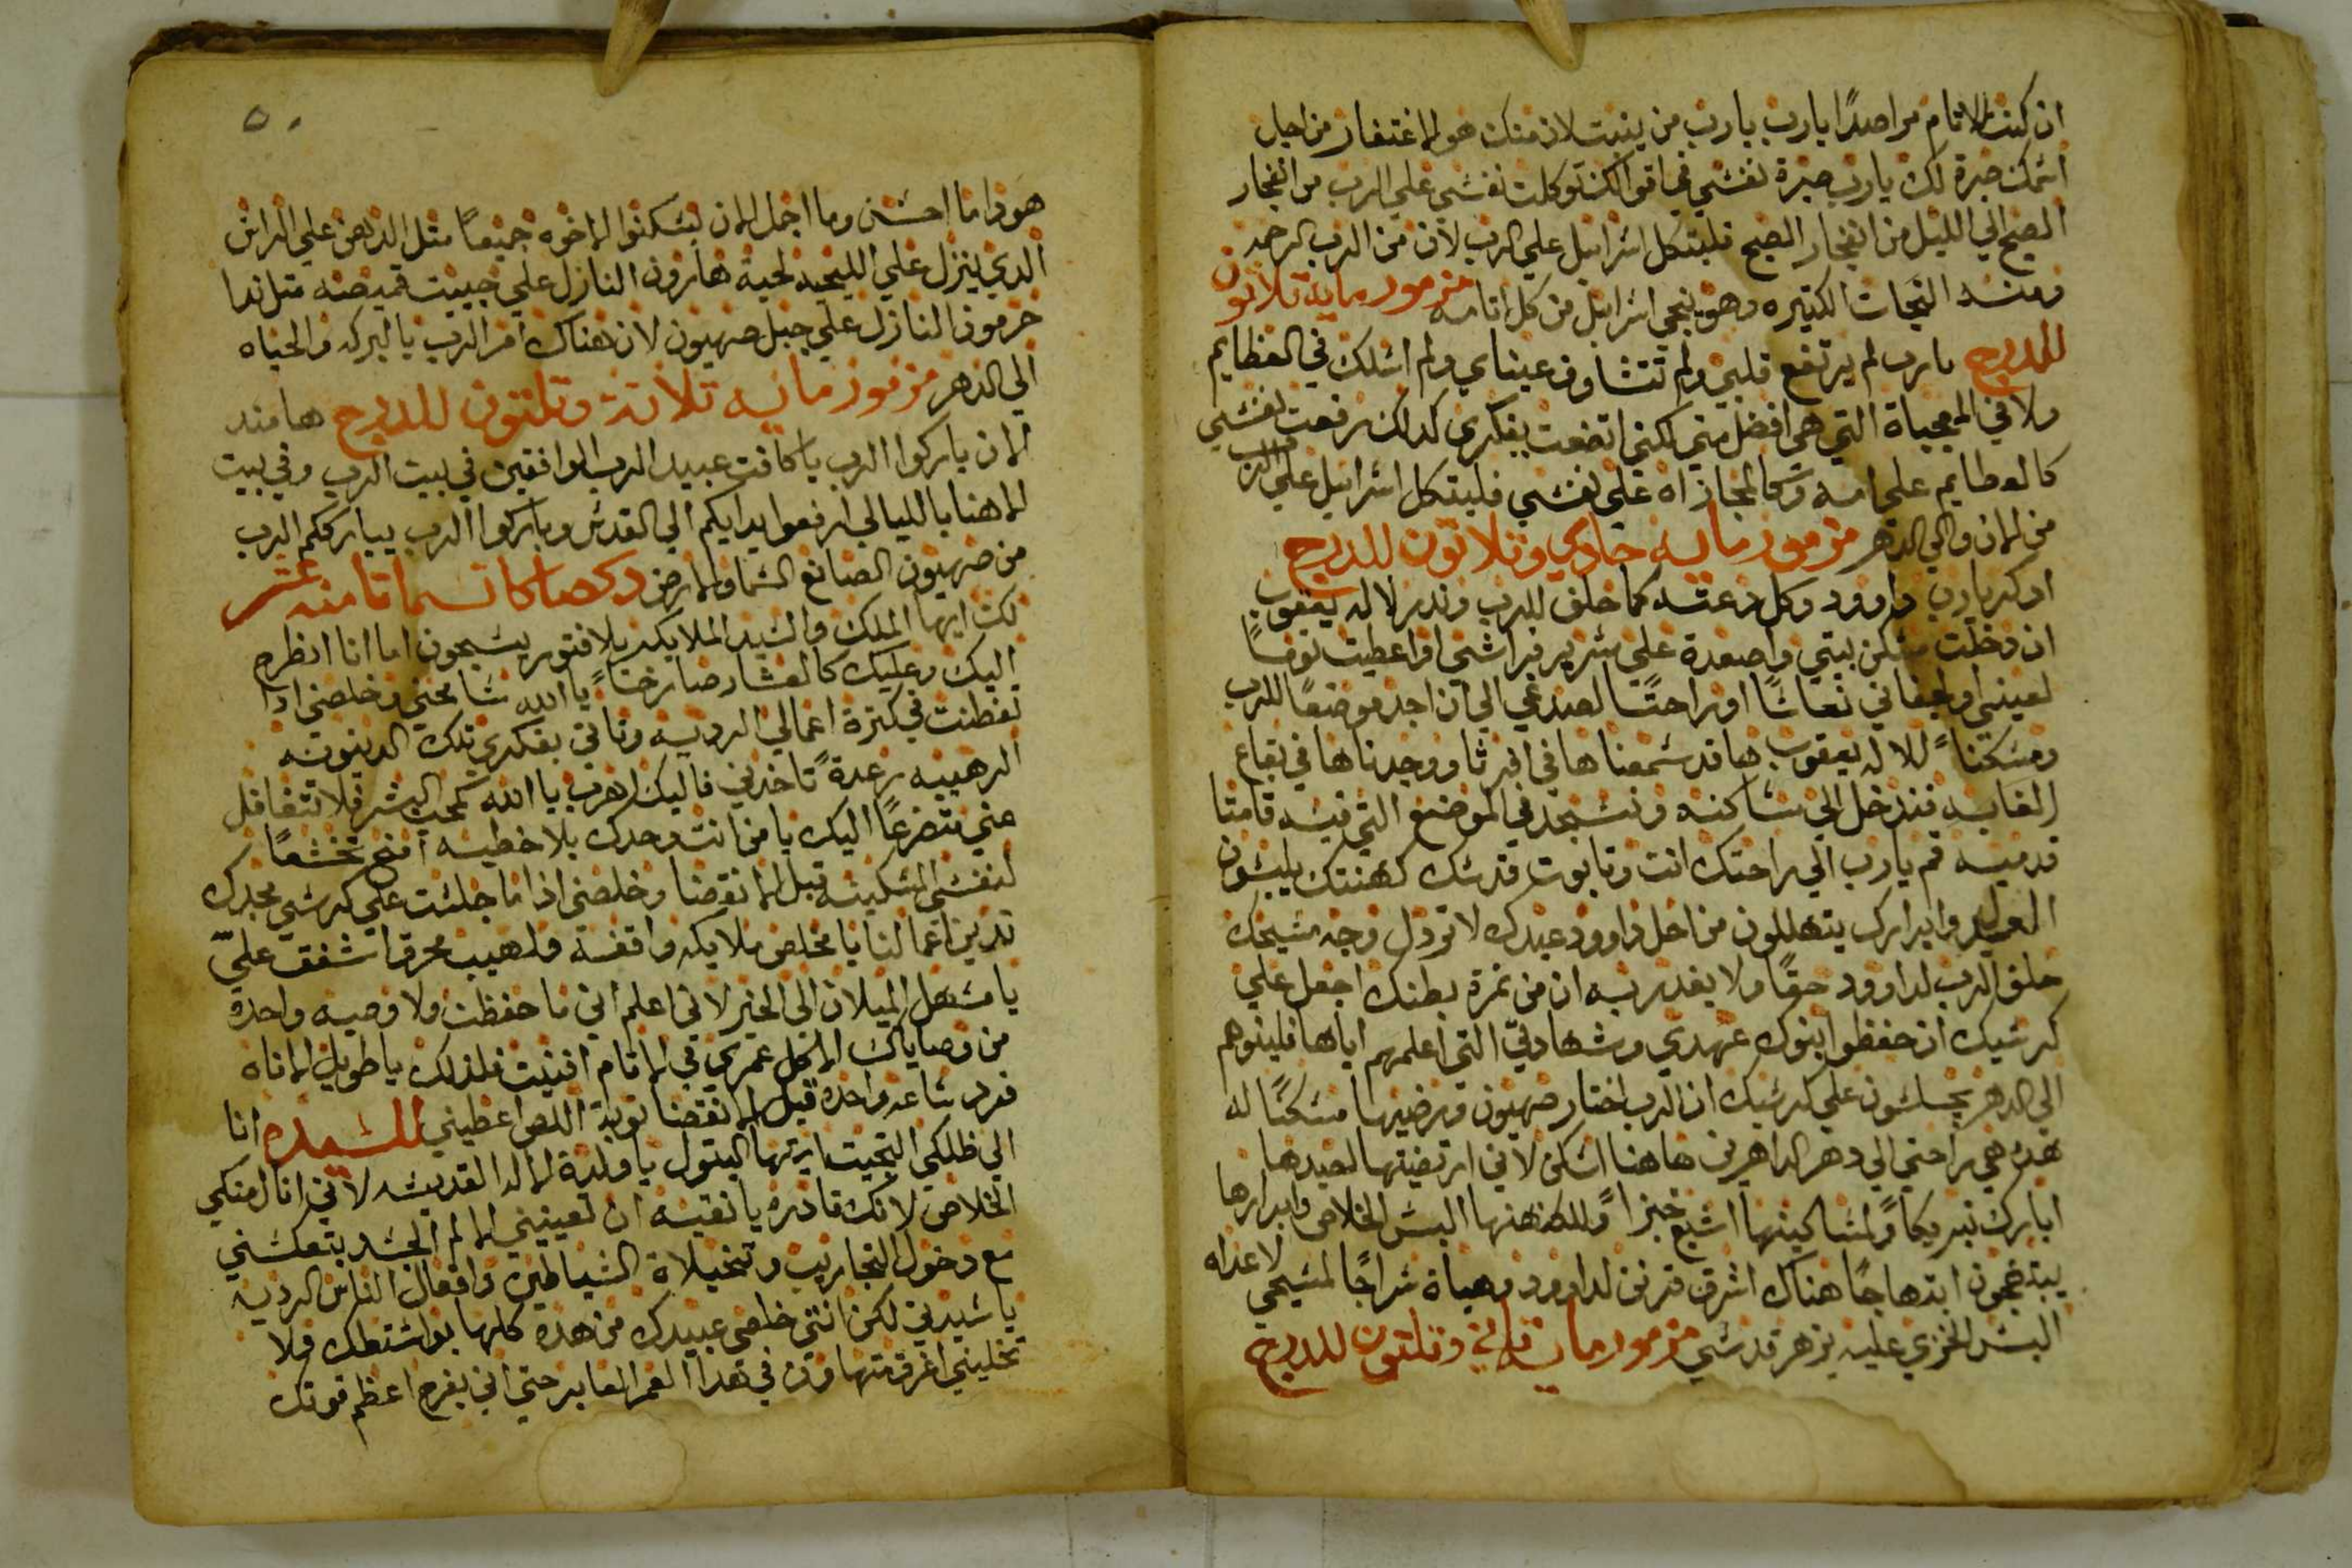 ان كنت للاثام مراصدًا يارب يارب من يثبت لان منك هو الاغتفار من اجل
اسمك صبرة لك يارب صبرة نفسي في اقوالك توكلت نفسي علي الرب من انفجار
الصبح الي الليل من انفجار الصبح فليتكل اسراييل علي الرب لان من الرب الرحمه
ومنه النجات الكتيره وهو ينجي اسراييل من كل اتامه مزمور مايه تلاتون
للدرج يارب لم يرتفع قلبي ولم تتشاوف عيناي ولم اسلك في العظايم
ولا في العجباة التي هي افضل مني لكني اتضعت بفكري كدلك رفعت نفسي
كالعظايم علي امه وكالمجازاه علي نفسي فليتكل اسراييل علي الرب
من الان والي الدهر مزمور مايه حادي وتلاتون للدرج
ادكر يارب داوود وكل دعته كما حلف للرب وندر لاله يعقوب
ان دخلت مسكن بيتي واصعدة علي سرير فراشي او اعطيت نومًا
لعيني او اجفاني نعاسًا او راحتًا لصدغي الي ان اجد موضعًا للرب
ومسكنًا للاله يعقوب ها قد سمعنا ها في افرتا ووجدناها في بقاع
الغابه فندخل الي مساكنه ونسجد في الموضع التي فيه قامتا
قدميه قم يارب الي راحتك انت وتابوت قدسك كهنتك يلبسون
العدل وابرارك يتهللون من اجل داوود عبدك لا تردل وجه مسيحك
حلف الرب لداوود حقًا ولا يغدر به ان من تمرة بطنك اجعل علي
كرسيك ان حفظوا بنوك عهدي وشهادتي التي اعلمهم اياها فبنوهم
الي الدهر يجلسون علي كرسيك ان الرب اختار صهيون ورضيها مسكنًا له
هده هي راحتي الي دهر الداهرين هاهنا اسكن لاني ارتضيتها لصيدها
ابارك تبريكًا ولمساكينها اشبع خبزًا ولكهنتها البس الخلاص وابرارها
يبتهجون ابتهاجًا هناك اشرق قرن لداوود وهياة سراجًا لمسيحي لاعداه
البس الخزي وعليه يزهر قدسي مزمور مايه تاني وتلتون للدرج
٥٠
هودا ما احسن وما اجمل الان يسكنوا الاخوه جميعًا متل الدهن علي الراس
الدي ينزل علي اللحيه لحية هارون النازل علي جيبت قميصه متل ندا
حرمون النازل علي جبل صهيون لان هناك امر الرب بالبركه والحياه
الي الدهر مزمور مايه تلاتة وتلتون للدرج ها مند
الان باركوا الرب يا كافت عبيد الرب الواقفين في بيت الرب وفي بيت
الاهنا بالليالي ارفعوا يدايكم الي القدس وباركوا الرب يبارككم الرب
من صهيون الصانع السما والارض دكصا كاتسما تامنه عشر
لك ايها الملك والسيد الملايكه بلا فتور يسبحون اما انا انطرح
اليك وعليك كالعشار صارخًا يا الله سامحني وخلصني ادا
تفطنت في كترة اعمالي الرديه وتاتي بفكري تلك الدينونه
الرهيبه رعدةً تاخدني فاليك اهرب يا الله كمحب البشر فلا تتغافل
عني متضرعًا اليك يا من انت وحدك بلا خطيه امنح تخشعًا
لنفسي المسكينه قبل الانقضا وخلصني اذا ما جلست علي كرسي مجدك
تدين اعمالنا يا مخلص ملايكه واقفة ولهيب محرق اشفق عليّ
يا مسهل الميلان الي الخير لاني اعلم اني ما حفظت ولا وصيه واحدة
من وصاياك الا كل عمري في الاتام افنيت فلدلك يا طويل الاناه
فرد ساعه واحدة قبل الانقضا توبة اللص اعطيني للسيده انا
الي ظلكي التجيت ايتها البتول يا ولدة الاله القديسه لاني انال منكي
الخلاص لانك قادره يا نقيه ان تعينيني الالم الجسد يتعكسني
مع دخول التجاريب وتخيلاة الشياطين وافعال الناس الرديه
يا سيدتي لكن انتي خلصي عبيدك من هده كلها بواسطتك ولا
تخليني اغرق متهاون في هدا العمر العابر حتي اني بفرح اعظم قوتك